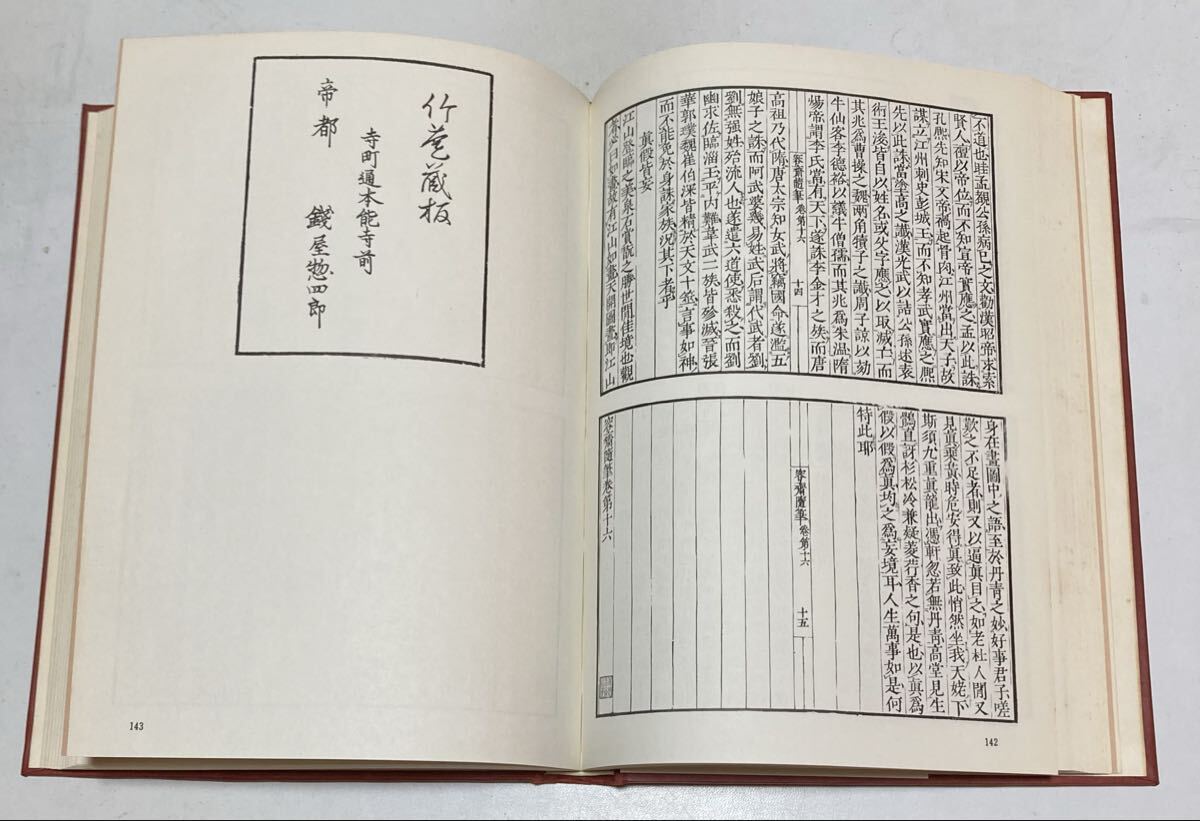 不道也眭孟覩公孫病已之文勸漢昭帝求索
賢人禪以帝位而不知宣帝實應之孟以此誅
孔熙先知宋文帝禍起骨肉江州當出天子故
謀立江州刺史彭城王而不知孝武實應之熙
先以此誅當塗高之讖漢光武以詰公孫述袁
術王浚皆自以姓名或父字應之以取滅亡而
其兆爲曹操之魏兩角犢子之讖周子諒以劾
牛仙客李德裕以議牛僧孺而其兆爲朱溫隋
煬帝謂李氏當有天下遂誅李金才之族而唐
容齋隨筆 卷第十六 十四
高祖乃代隋唐太宗知女武將竊國命遂濫五
娘子之誅而阿武婆幾易姓武后謂代武者劉
劉無强姓殆流人也遂遣六道使悉殺之而劉
幽求佐臨淄王平內難韋武二族皆殄滅晉張
華郭璞魏崔伯深皆精於天文卜筮言事如神
而不能免於身誅家族況其下者乎
眞假皆妄
江山登臨之美泉石賞翫之勝世間佳境也觀
者必曰如畫故有江山如畫天開圖畫卽江山
身在畫圖中之語至於丹青之妙好事君子嗟
歎之不足者則又以逼眞目之如老杜人間又
見眞乘黃時危安得眞致此悄然坐我天姥下
斯須九重眞龍出憑軒忽若無丹靑高堂見生
鶻直訝杉松冷兼疑菱荇香之句是也以眞爲
假以假爲眞均之爲妄境耳人生萬事如是何
特此耶
容齋隨筆 卷第十六 十五
容齋隨筆卷第十六
142
竹苞蔵板
寺町通本能寺前
帝都 錢屋惣四郎
143